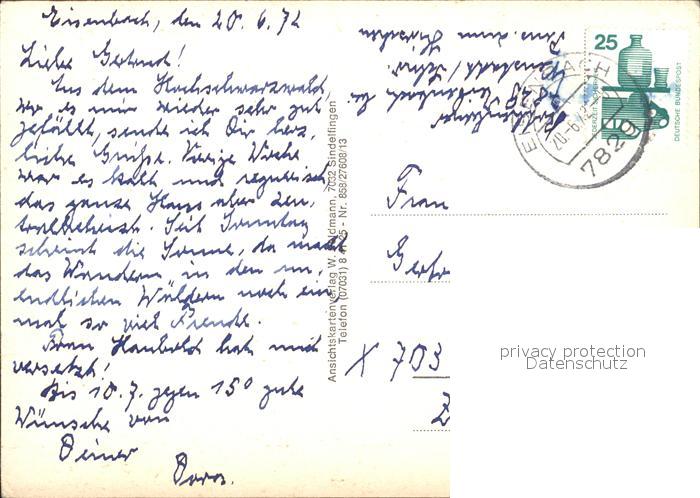 Eisenbach, den 20.6.72
Liebe Gertrud!
Aus dem Hochschwarzwald,
wo es mir wieder sehr gut
gefällt, sende ich Dir herz-
liche Grüße. Vorige Woche
war es kalt und regnerisch,
das ganze Haus aber zen-
tralbeheizt. Seit Sonntag
scheint die Sonne, da macht
das Wandern in den un-
endlichen Wäldern noch ein-
mal so viel Freude.
Frau Haubold hat mich
versetzt!
Bis 10.7. gegen 15° gute
Wünsche von
Deiner
Doros.
Ansichtskartenverlag W. 7032 Sindelfingen
Telefon (07031) 8 25 - Nr. 858/27608/13
7829 Eisenbach
25
DEUTSCHE BUNDESPOST
JEDERZEIT SICHERHEIT
EISENBACH
20.-6.72
7829
Frau
Gertr
X 703
privacy protection
Datenschutz